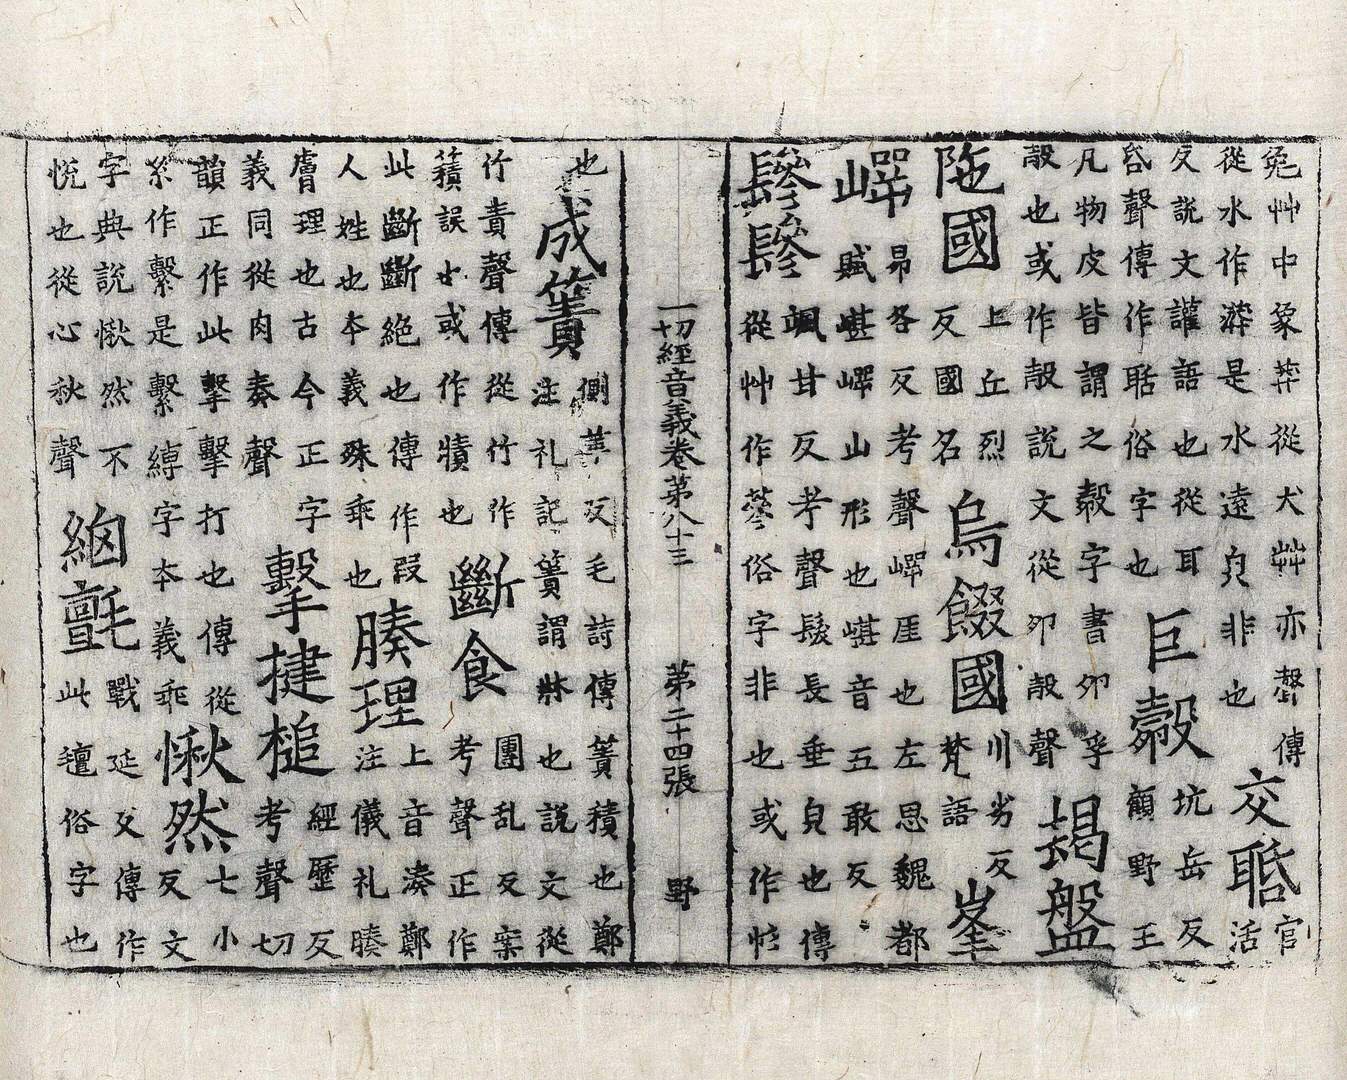 兔艸中象莽從犬艸亦聲傳
從水作漭是水遠皃非也
交聒
官
活
反說文讙語也從耳
昏聲傳作聒俗字也
巨㲉
坑岳反
顧野王
凡物皮皆謂之㲉字書卵孚
㲉也或作㲉說文從卵㲉聲
盤
陁國
上丘烈
反國名
烏餟國
川劣反
梵語
峯
崿
昴各反考聲崿厓也左思魏都
賦嵁崿山形也嵁音五敢反
鬖鬖
颯甘反考聲髮長垂皃也傳
從艸作蔘俗字非也或作
一切經音義卷第八十三 第二十四張 野
也
成簀
側革反毛詩傳簀積也鄭
注礼記簀謂牀也說文從
竹責聲傳從竹作
積誤也或作牘也
斷食
團乱反案
考聲正作
此斷斷絕也傳作叚
人姓也本義殊乖也
腠理
上音湊鄭
注儀礼腠
膚理也古今正字
義同從肉奏聲
擊揵槌
經歷反
考聲切
韻正作此擊擊打也傳從
糸作繫是繫縛字本義乖
愀然
七小
反文
字典說愀然不
悅也從心秋聲
絪氈
戰延反傳作
此氊俗字也